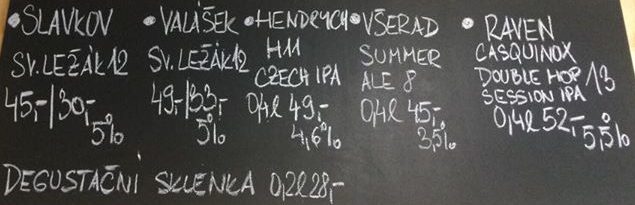 • SLAVKOV
SV. LEŽÁK 12
45,-/30,-
5%
• VALÁŠEK
SV. LEŽÁK 12
49,-/33,-
5%
• HENDRYCH
H11
CZECH IPA
0,4l 49,-
4,6%
• VŠERAD
SUMMER
ALE 8
0,4l 45,-
3,5%
• RAVEN
CASQUINOX
DOUBLE HOP 13
SESSION IPA
0,4l 52,-
5,5%
DEGUSTAČNÍ SKLENKA 0,2l 28,-